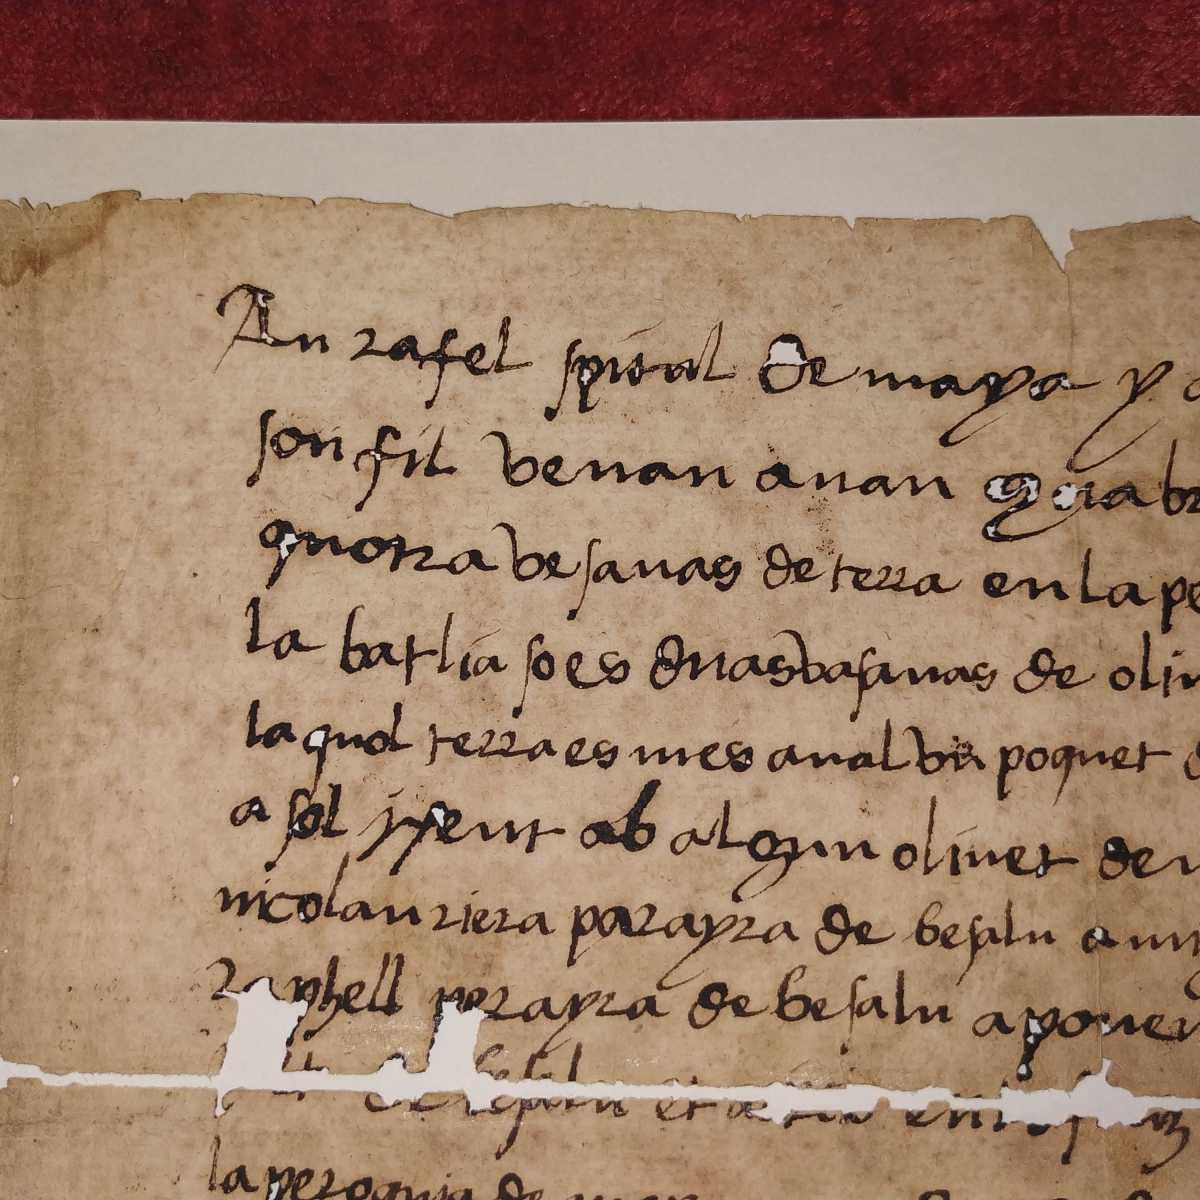 An rafel spital de maya y
son fil venan a uan
quotra vesanas de terra en la pe
la batlia so es duas vasanas de oliu
la qual terra es mes aual vn poquet
a sol ixent ab algun oliuet de
nicolau riera parayra de besalu
raphell perayra de besalu a poner
de besalu et
la peroquia de